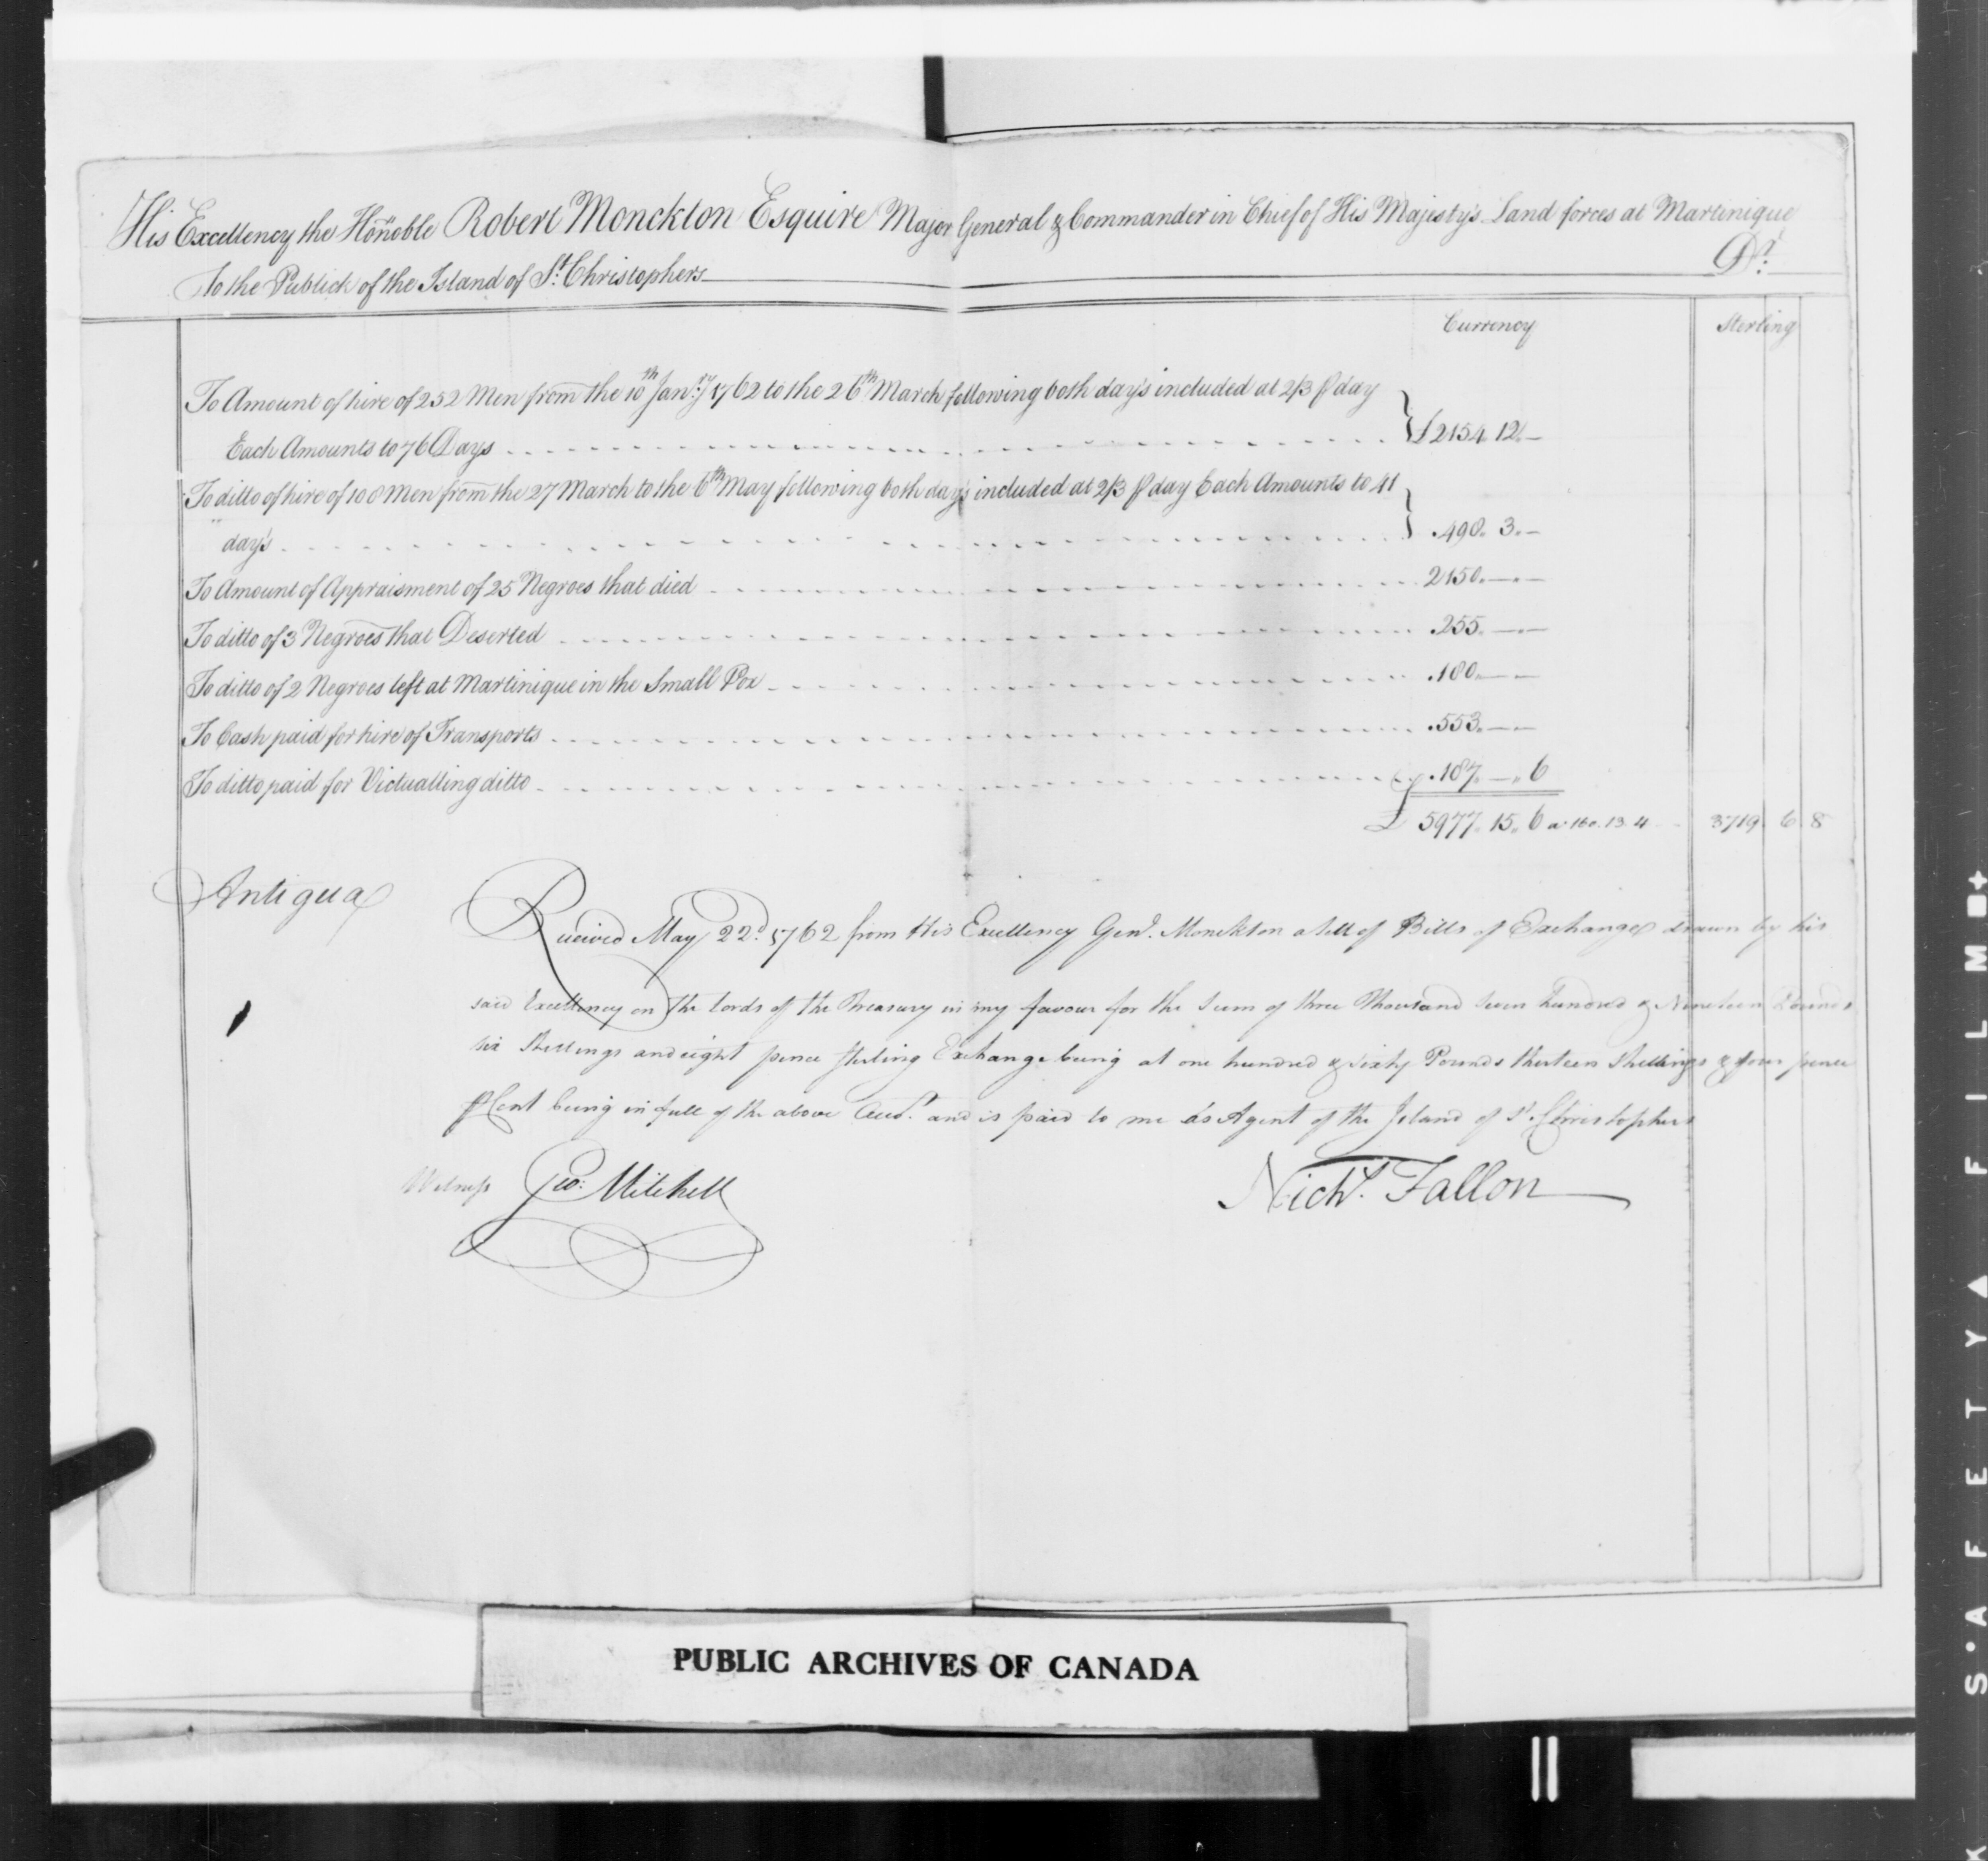 His Excellency the Honble Robert Monckton Esquire Major General & Commander in Chief of His Majesty's Land forces at Martinique
To the Publick of the Island of St. Christophers Dr.
Currency Sterling
To Amount of hire of 252 Men from the 10th Janry 1762 to the 26th March following both day's included at 2/3 ⅌ day
Each Amounts to 76 Days } £2154. 12. —
To ditto of hire of 108 Men from the 27 March to the 6th May following both day's included at 2/3 ⅌ day Each Amounts to 41
day's } 498. 3. —
To Amount of Appraisment of 25 Negroes that died 2150. — . —
To ditto of 3 Negroes that Deserted 255. — . —
To ditto of 2 Negroes left at Martinique in the Small Pox 180. — —
To Cash paid for hire of Transports 553. — . —
To ditto paid for Victualling ditto 187. — . 6
£ 5977. 15. 6 a 160. 13. 4 3719 6 8
Antigua
Received May 22d. 1762 from His Excellency Genl. Monckton a Sett of Bills of Exchange drawn by his
said Excellency on the Lords of the Treasury in my favour for the Sum of three Thousand Seven hundred & Nineteen Pounds
six Shillings and eight pence Sterling Exchange being at one hundred & sixty Pounds thirteen Shillings & four pence
⅌ Cent being in full of the above Acct. and is paid to me as Agent of the Island of St. Christophers
Witness Geo: Mitchell Nichs. Fallon
PUBLIC ARCHIVES OF CANADA
S A F E T Y ▲ F I L M